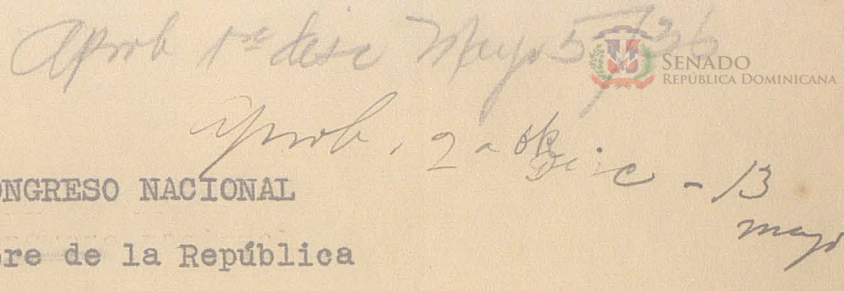 Aprob 1ra disc Mayo 5/36
SENADO
REPÚBLICA DOMINICANA
Aprob. 2a disc - 13
mayo
ONGRESO NACIONAL
bre de la República